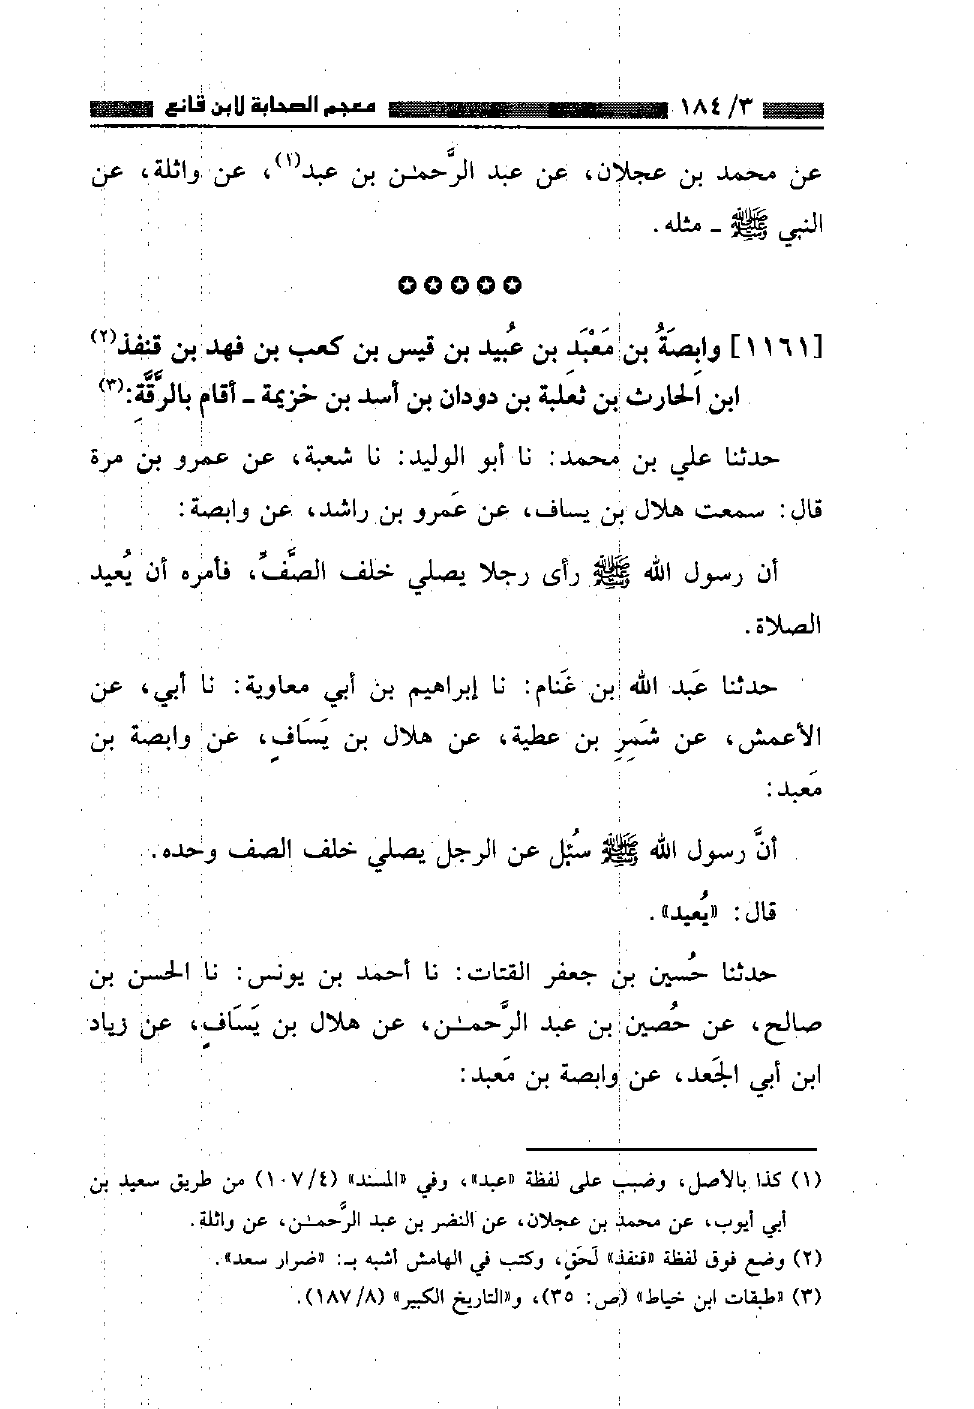 ٣/ ١٨٤ معجم الصحابة لابن قانع
عن محمد بن عجلان، عن عبد الرَّحمـٰن بن عبد(١)، عن واثلة، عن
النبي ﷺ ـ مثله.
✪✪✪✪✪
[١١٦١] وابِصَةُ بن مَعْبَدِ بن عُبيد بن قيس بن كعب بن فهد بن قنفذ(٢)
ابن الحارث بن ثعلبة بن دودان بن أسد بن خزيمة ـ أقام بالرَّقَّةِ:(٣)
حدثنا علي بن محمد: نا أبو الوليد: نا شعبة، عن عمرو بن مرة
قال: سمعت هلال بن يساف، عن عَمرو بن راشد، عن وابصة:
أن رسول الله ﷺ رأى رجلا يصلي خلف الصَّفِّ، فأمره أن يُعيد
الصلاة.
حدثنا عَبد الله بن غَنام: نا إبراهيم بن أبي معاوية: نا أبي، عن
الأعمش، عن شَمِرِ بن عطية، عن هلال بن يَسَافٍ، عن وابصة بن
مَعبد:
أنَّ رسول الله ﷺ سُئِل عن الرجل يصلي خلف الصف وحده.
قال: «يُعيد».
حدثنا حُسين بن جعفر القتات: نا أحمد بن يونس: نا الحسن بن
صالح، عن حُصين بن عبد الرَّحمـٰن، عن هلال بن يَسَافٍ، عن زياد
ابن أبي الجَعد، عن وابصة بن مَعبد:
(١) كذا بالأصل، وضبب على لفظة «عبد»، وفي «المسند» (٤/ ١٠٧) من طريق سعيد بن
أبي أيوب، عن محمد بن عجلان، عن النضر بن عبد الرَّحمـٰن، عن واثلة.
(٢) وضع فوق لفظة «قنفذ» لَحَقٍ، وكتب في الهامش أشبه بـ: «ضرار سعد».
(٣) «طبقات ابن خياط» (ص: ٣٥)، و«التاريخ الكبير» (٨/ ١٨٧).